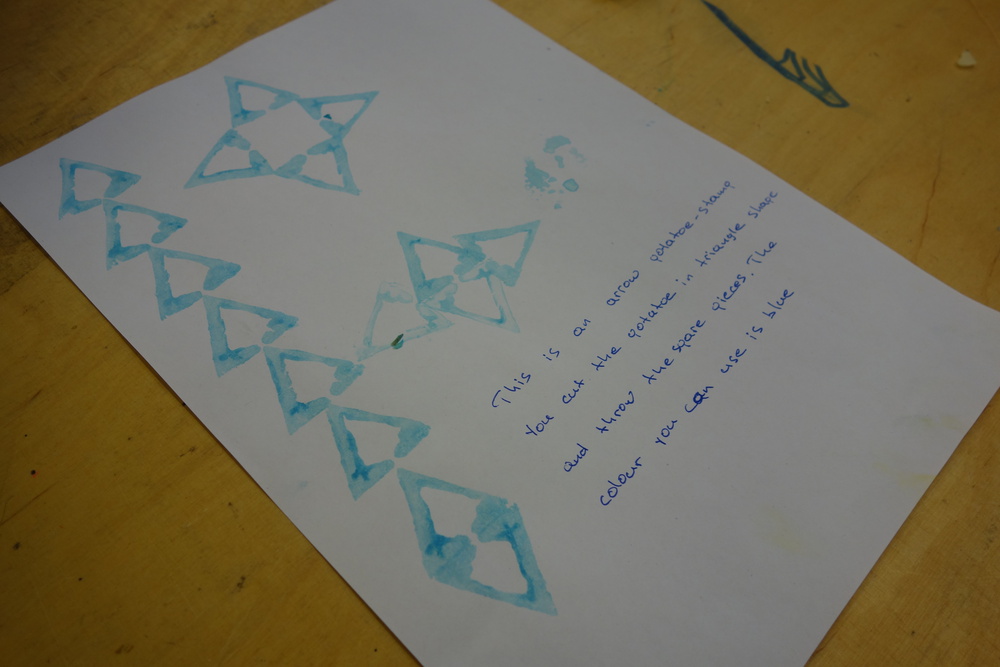 This is an arrow potatoe-stamp
You cut the potatoe in triangle shape
and throw the spare pieces. The
colour you can use is blue